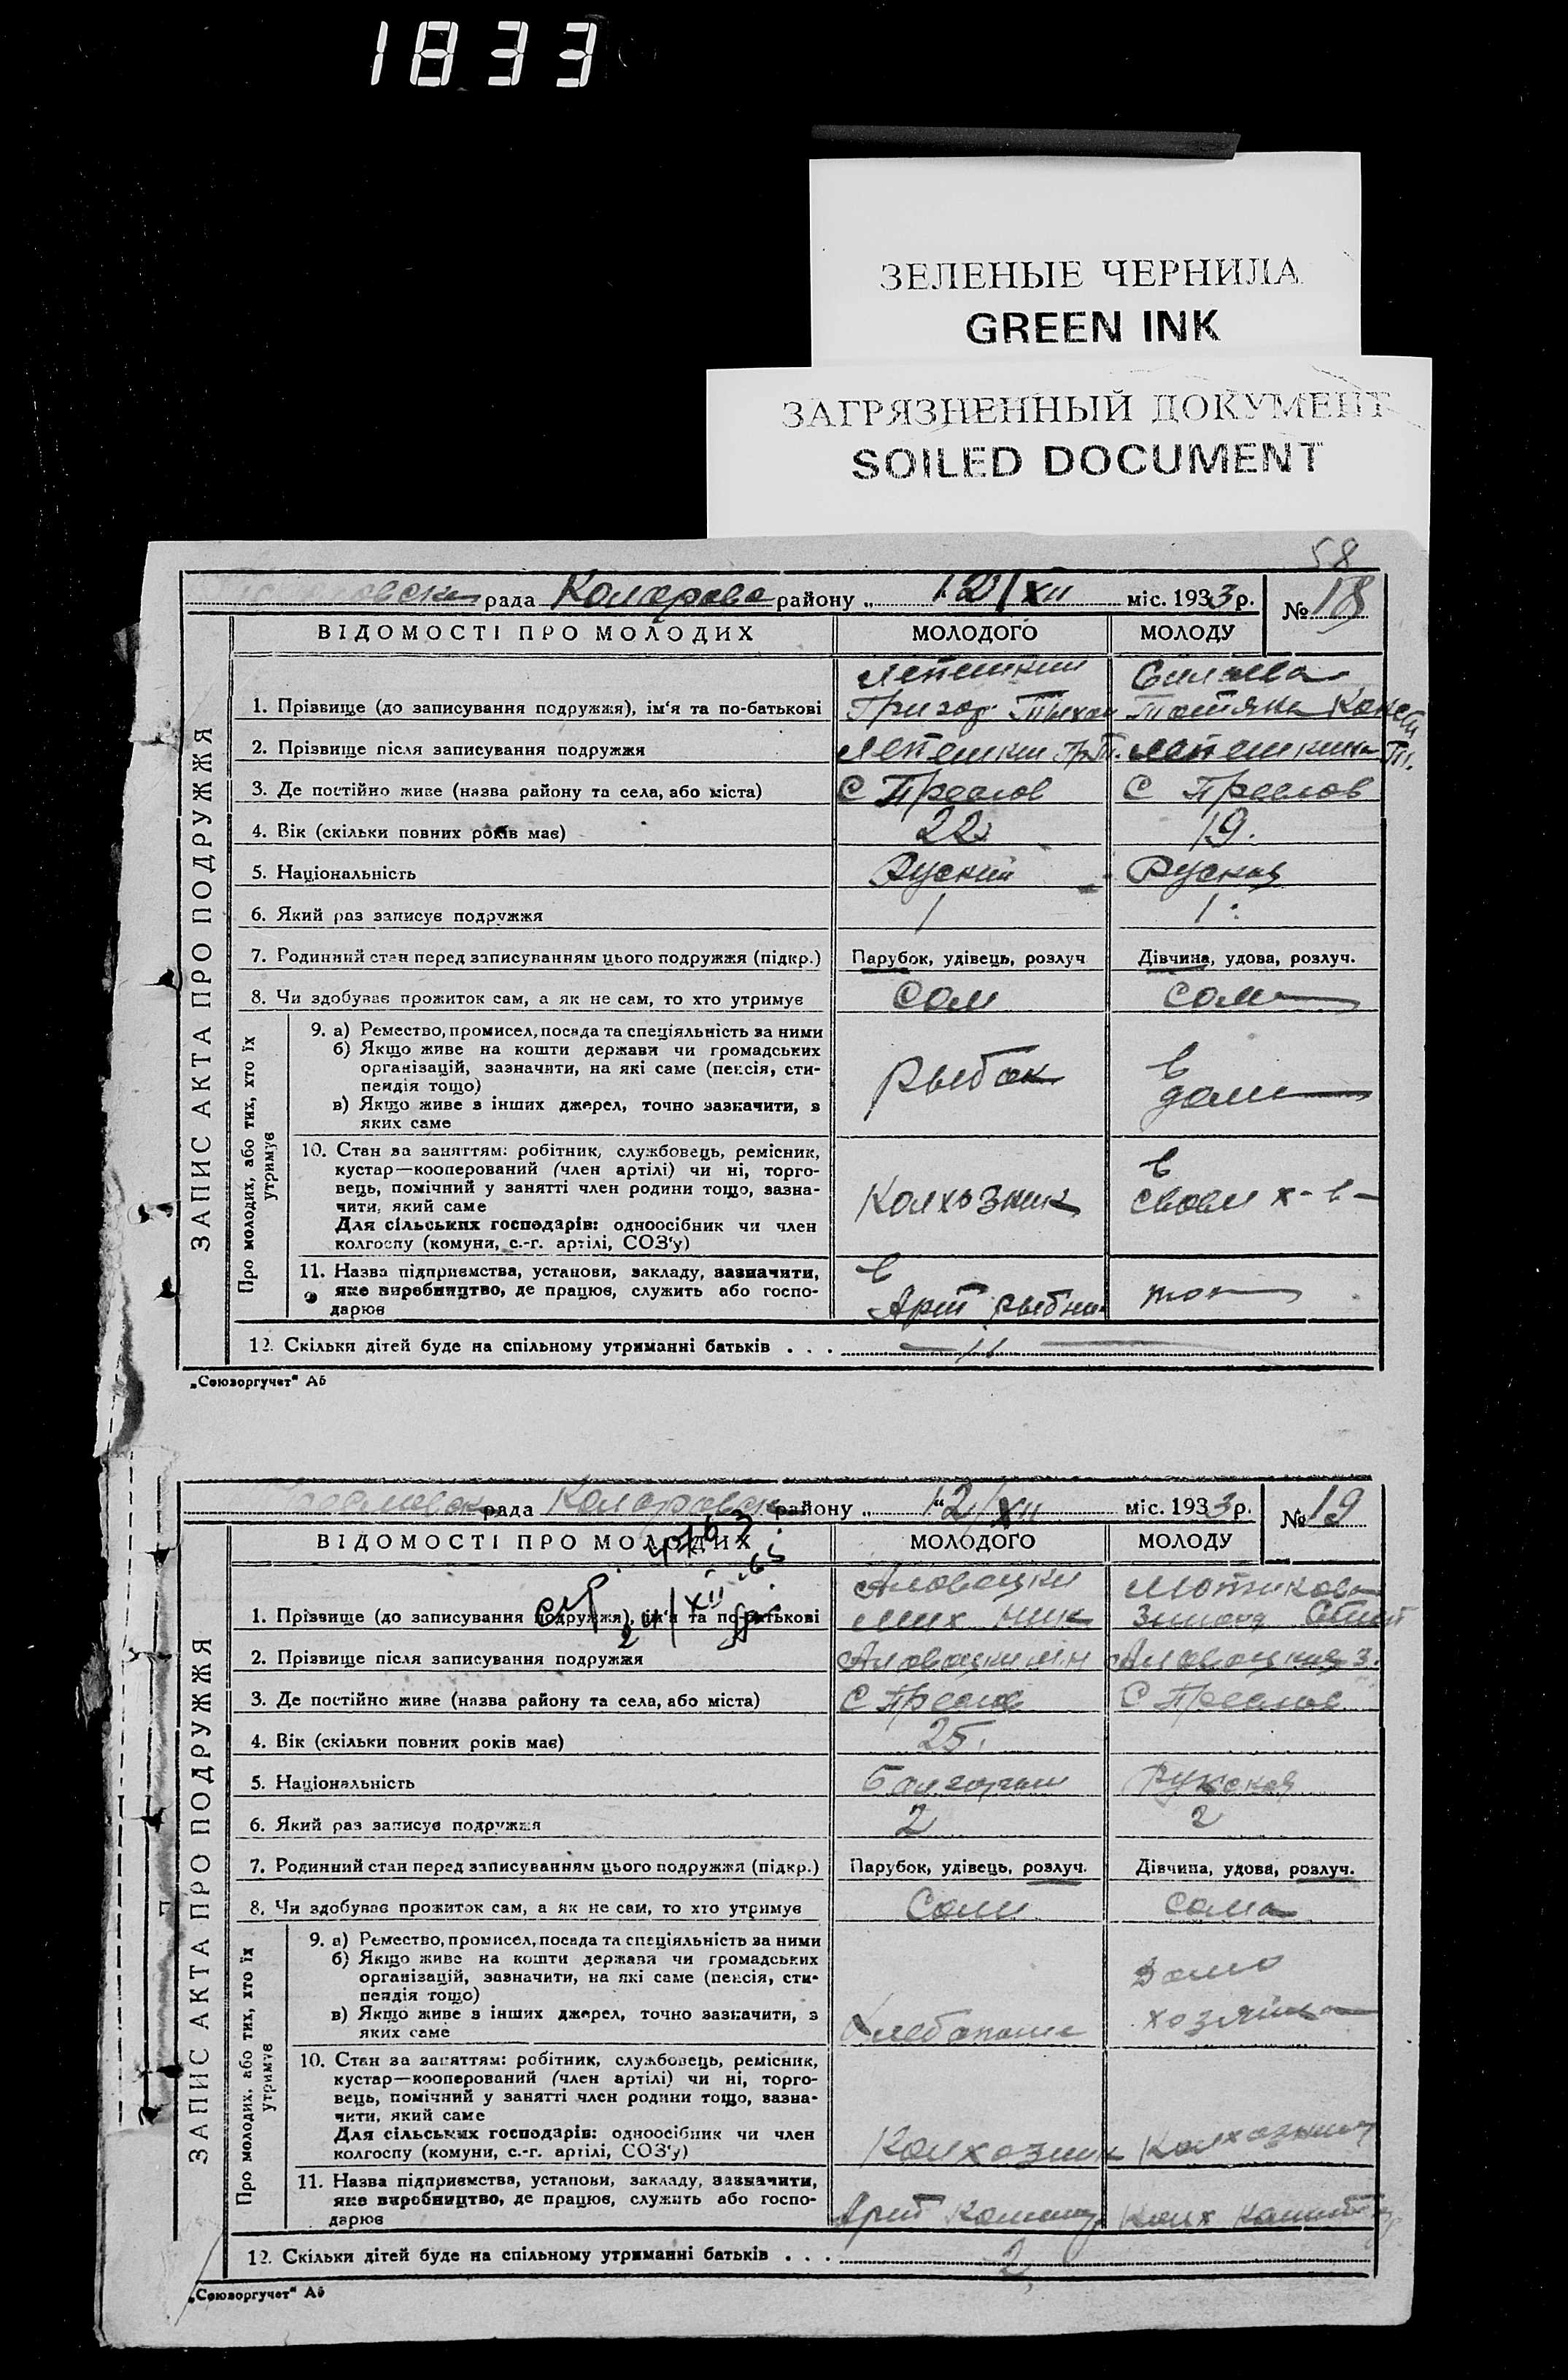 1833
ЗЕЛЕНЫЕ ЧЕРНИЛА
GREEN INK
ЗАГРЯЗНЕННЫЙ ДОКУМЕНТ
SOILED DOCUMENT
58
рада Коларова району „ 12/XII міс. 1933 р. № 18
ЗАПИС АКТА ПРО ПОДРУЖЖЯ
ВІДОМОСТІ ПРО МОЛОДИХ МОЛОДОГО МОЛОДУ
Лепешкин
1. Прізвище (до записування подружжя), ім'я та по-батькові Григор Тихон Татяна Конст
2. Прізвище після записування подружжя Лепешкин Гр Т. Лепешкина Т.
3. Де постійно живе (назва району та села, або міста) С Преслов С Преслов
4. Вік (скільки повних років має) 22 19.
5. Національність Руский Руская
6. Який раз записує подружжя 1 1
7. Родинний стан перед записуванням цього подружжя (підкр.) Парубок, удівець, розлуч Дівчина, удова, розлуч.
8. Чи здобуває прожиток сам, а як не сам, то хто утримує Сам сама
Про молодих, або тих, хто їх утримує
9. а) Ремество, промисел, посада та спеціяльність за ними
б) Якщо живе на кошти держави чи громадських
організацій, зазначити, на які саме (пенсія, сти-
пендія тощо)
в) Якщо живе з інших джерел, точно зазначити, з
яких саме
Рыбак
в
доме
10. Стан за заняттям: робітник, службовець, ремісник,
кустар—кооперований (член артілі) чи ні, торго-
вець, помічний у занятті член родини тощо, зазна-
чити, який саме
Для сільських господарів: одноосібник чи член
колгоспу (комуни, с.-г. артілі, СОЗ'у)
Колхозник
в
своем х-в-
11. Назва підприємства, установи, закладу, зазначити,
яке виробництво, де працює, служить або госпо-
дарює
в
Арт рыбник
12. Скільки дітей буде на спільному утриманні батьків . . . — 11 —
„Союзоргучет" Аб
рада району „ 12/XII міс. 1933 р. № 19
ЗАПИС АКТА ПРО ПОДРУЖЖЯ
ВІДОМОСТІ ПРО МОЛОДИХ МОЛОДОГО МОЛОДУ
1. Прізвище (до записування подружжя), ім'я та по-батькові Мих Ник
2. Прізвище після записування подружжя
3. Де постійно живе (назва району та села, або міста) С Преслов С Преслов
4. Вік (скільки повних років має) 25.
5. Національність Болгарин Руская
6. Який раз записує подружжя 2 2
7. Родинний стан перед записуванням цього подружжя (підкр.) Парубок, удівець, розлуч. Дівчина, удова, розлуч.
8. Чи здобуває прожиток сам, а як не сам, то хто утримує Сам сама
Про молодих, або тих, хто їх утримує
9. а) Ремество, промисел, посада та спеціяльність за ними
б) Якщо живе на кошти держави чи громадських
організацій, зазначити, на які саме (пенсія, сти-
пендія тощо)
в) Якщо живе з інших джерел, точно зазначити, з
яких саме
Домо
хозяйка
10. Стан за заняттям: робітник, службовець, ремісник,
кустар—кооперований (член артілі) чи ні, торго-
вець, помічний у занятті член родини тощо, зазна-
чити, який саме
Для сільських господарів: одноосібник чи член
колгоспу (комуни, с.-г. артілі, СОЗ'у)
Колхозник
11. Назва підприємства, установи, закладу, зазначити,
яке виробництво, де працює, служить або госпо-
дарює
Арт
12. Скільки дітей буде на спільному утриманні батьків . . . 2
„Союзоргучет" Аб